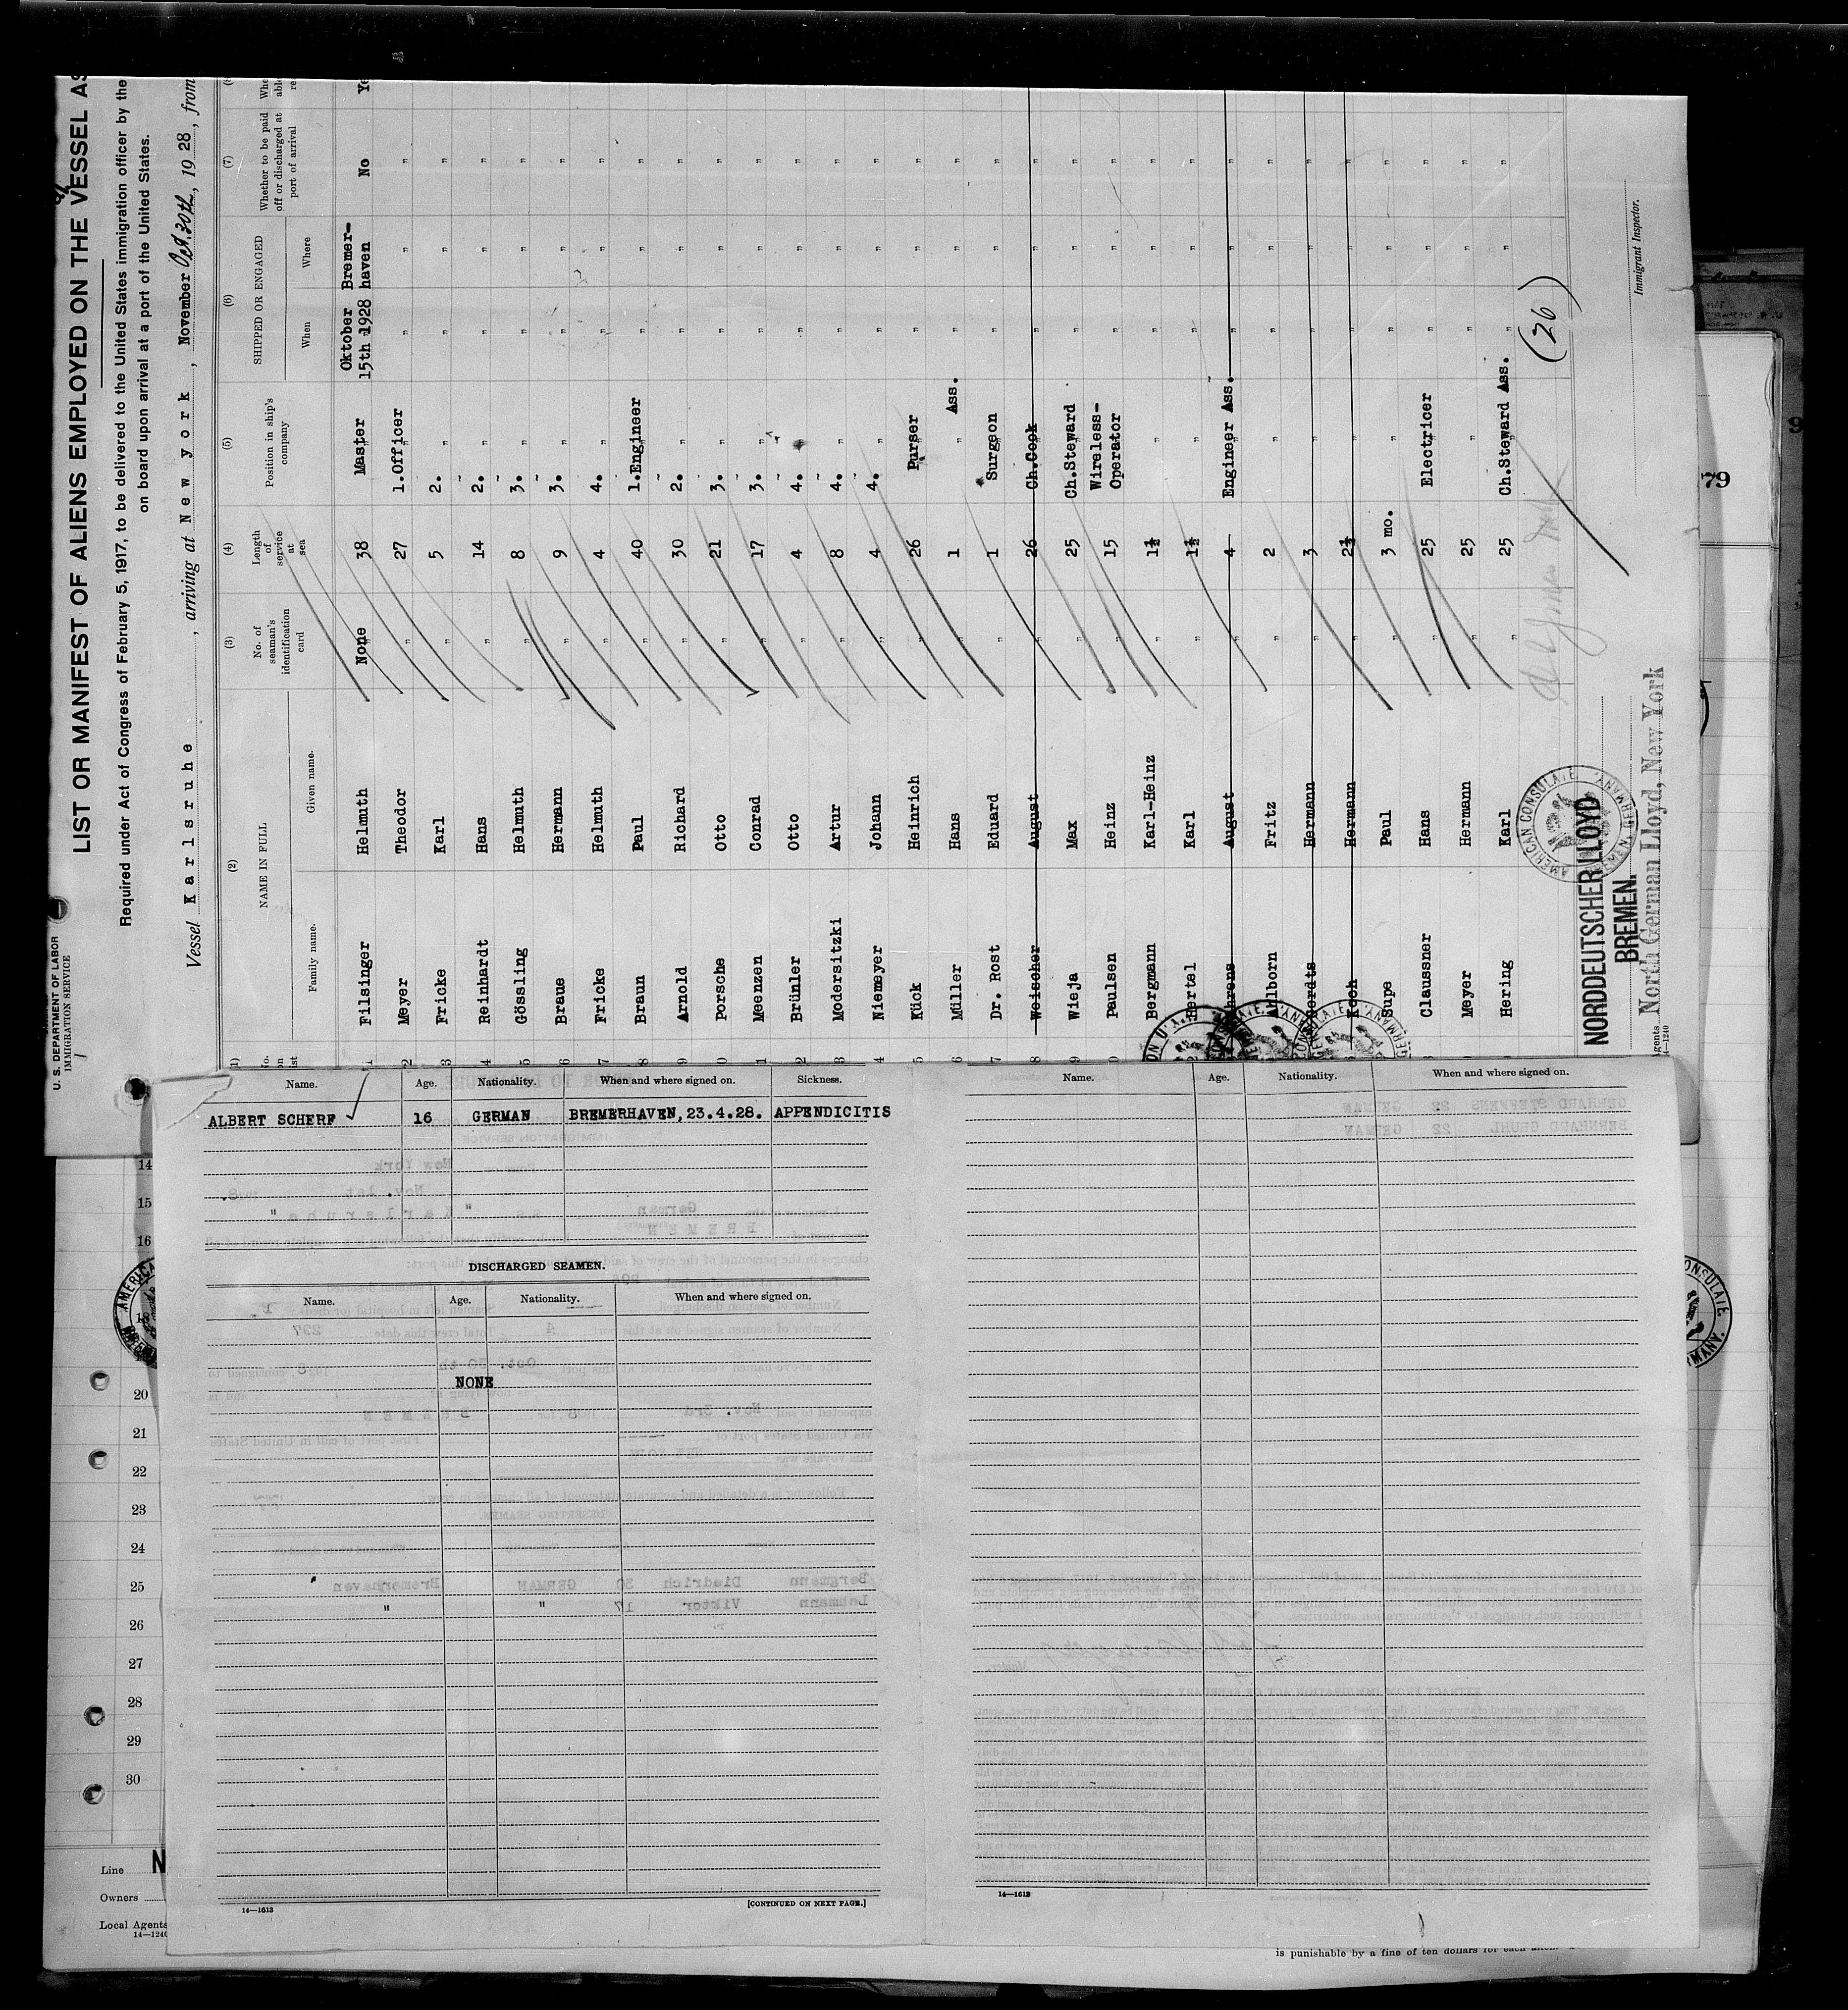 U. S. DEPARTMENT OF LABOR
IMMIGRATION SERVICE
LIST OR MANIFEST OF ALIENS EMPLOYED ON THE VESSEL AS
Required under Act of Congress of February 5, 1917, to be delivered to the United States immigration officer by the
on board upon arrival at a port of the United States.
Vessel Karlsruhe , arriving at New york , November Oct. 30th, 1928, from
(1) (2) (3) (4) (5) (6) (7)
NAME IN FULL
Family name. Given name.
No. of seaman's identification card
Length of service at sea
Position in ship's company
SHIPPED OR ENGAGED
When Where
Whether to be paid off or discharged at port of arrival
1 Filsinger Helmuth None 38 Master Oktober 15th 1928 Bremerhaven No Ye
2 Meyer Theodor " 27 1.Officer " " "
3 Fricke Karl " 5 2. " " " "
4 Reinhardt Hans " 14 2. " " " "
5 Gössling Helmuth " 8 3. " " " "
6 Braue Hermann " 9 3. " " " "
7 Fricke Helmuth " 4 4. " " " "
8 Braun Paul " 40 1.Engineer " " "
9 Arnold Richard " 30 2. " " " "
0 Porsche Otto " 21 3. " " " "
1 Meenzen Conrad " 17 3. " " " "
2 Brünler Otto " 4 4. " " " "
3 Modersitzki Artur " 8 4. " " " "
4 Niemeyer Johann " 4 4. " " " "
5 Kück Heinrich " 26 Purser " " "
6 Müller Hans " 1 " Ass. " " "
7 Dr. Rost Eduard " 1 Surgeon " " "
8 Weischer August " 26 Ch.Cook " " "
9 Wieja Max " 25 Ch.Steward " " "
0 Paulsen Heinz " 15 Wireless-Operator " " "
Bergmann Karl-Heinz " 1½ " " " "
Hertel Karl " 1½ " " " "
Ahrens August " 4 Engineer Ass. " " "
Ahlborn Fritz " 2 " " " "
Gerdts Hermann " 3 " " " "
Koch Hermann " 2½ " " " "
Supe Paul " 3 mo. " " " "
Claussner Hans " 25 Electricer " " "
Meyer Hermann " 25 " " " "
Hering Karl " 25 Ch.Steward Ass. " " "
(26)
AMERICAN CONSULATE
BREMEN, GERMANY
NORDDEUTSCHER LLOYD
BREMEN.
Agents North German Lloyd, New York
14—1240
Immigrant Inspector.
Name. Age. Nationality. When and where signed on. Sickness.
ALBERT SCHERF 16 GERMAN BREMERHAVEN,23.4.28. APPENDICITIS
DISCHARGED SEAMEN.
Name. Age. Nationality. When and where signed on.
NONE
14—1613
[CONTINUED ON NEXT PAGE.]
Name. Age. Nationality. When and where signed on.
14—1613
14
15
16
18
20
21
22
23
24
25
26
27
28
29
30
Line N
Owners
Local Agents
14—1240
79
is punishable by a fine of ten dollars for each alien